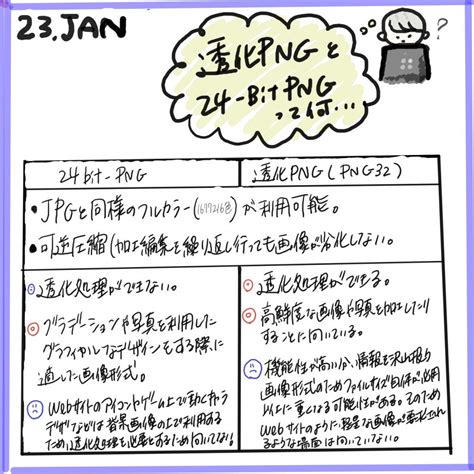 23.JAN
透化PNGと
24-BitPNG
って何…
?
24bit-PNG
透化PNG(PNG32)
・JPGと同様のフルカラー(1677216色)が利用可能。
・可逆圧縮(加工編集を繰り返し行っても画像が劣化しない。
透化処理ができない。
グラデーションや写真を利用した
グラフィカルなデザインをする際に
適した画像形式。
Webサイトのアイコンやゲーム上で動くキャラ
デザなどは背景画像の上で利用する
ため、透化処理を必要とするため向いてない!
透化処理ができる。
高鮮度な画像や写真を加工したり
することに向いている。
機能性が高い分、情報を沢山扱う
画像形式のためファイルサイズ自体が必用
以上に重くなる可能性がある。そのため
Webサイトのように軽量な画像が要求され
るような場面は向いていない。